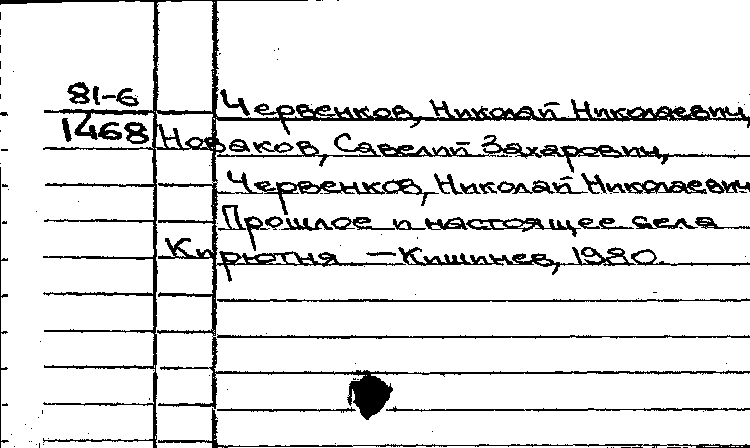 81-6
Червенков, Николай Николаевич,
1468 Новаков, Савелий Захарович,
Червенков, Николай Николаевич
Прошлое и настоящее села
Кирютня — Кишинев, 1980.